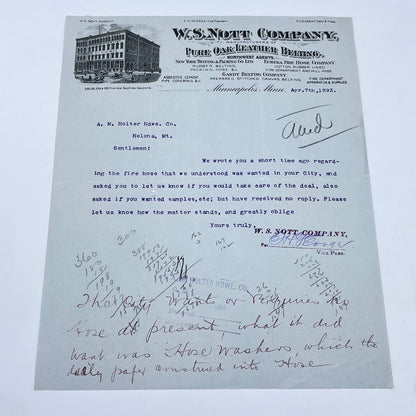 W.S. NOTT, PRESIDENT
W.S. NOTT COMPANY,
MANUFACTURERS OF
PURE OAK LEATHER BELTING.
NORTHWEST AGENTS
NEW YORK BELTING & PACKING CO. LTD.
RUBBER BELTING,
PACKING, HOSE &c.
EUREKA FIRE HOSE COMPANY.
COTTON RUBBER LINED
FIRE DEPARTMENT AND MILL HOSE
GANDY BELTING COMPANY.
PREPARED STITCHED CANVAS BELTING.
ASBESTOS CEMENT
PIPE COVERING &c.
FIRE DEPARTMENT
APPARATUS & SUPPLIES
Minneapolis, Minn. Apr. 7th, 1893.
A. M. Holter Hdwe. Co.
Helena, Mt.
Gentlemen:
We wrote you a short time ago regard-
ing the fire hose that we understood was wanted in your City, and
asked you to let us know if you would take care of the deal, also
asked if you wanted samples, etc; but have received no reply. Please
let us know how the matter stands, and greatly oblige
Yours truly,
W. S. NOTT COMPANY,
Per
VICE PRES.
360
300
HOLTER HDWE. CO.
The City wants or requires no
hose at present, what it did
want was Hose Washers, which the
daily paper construed into Hose